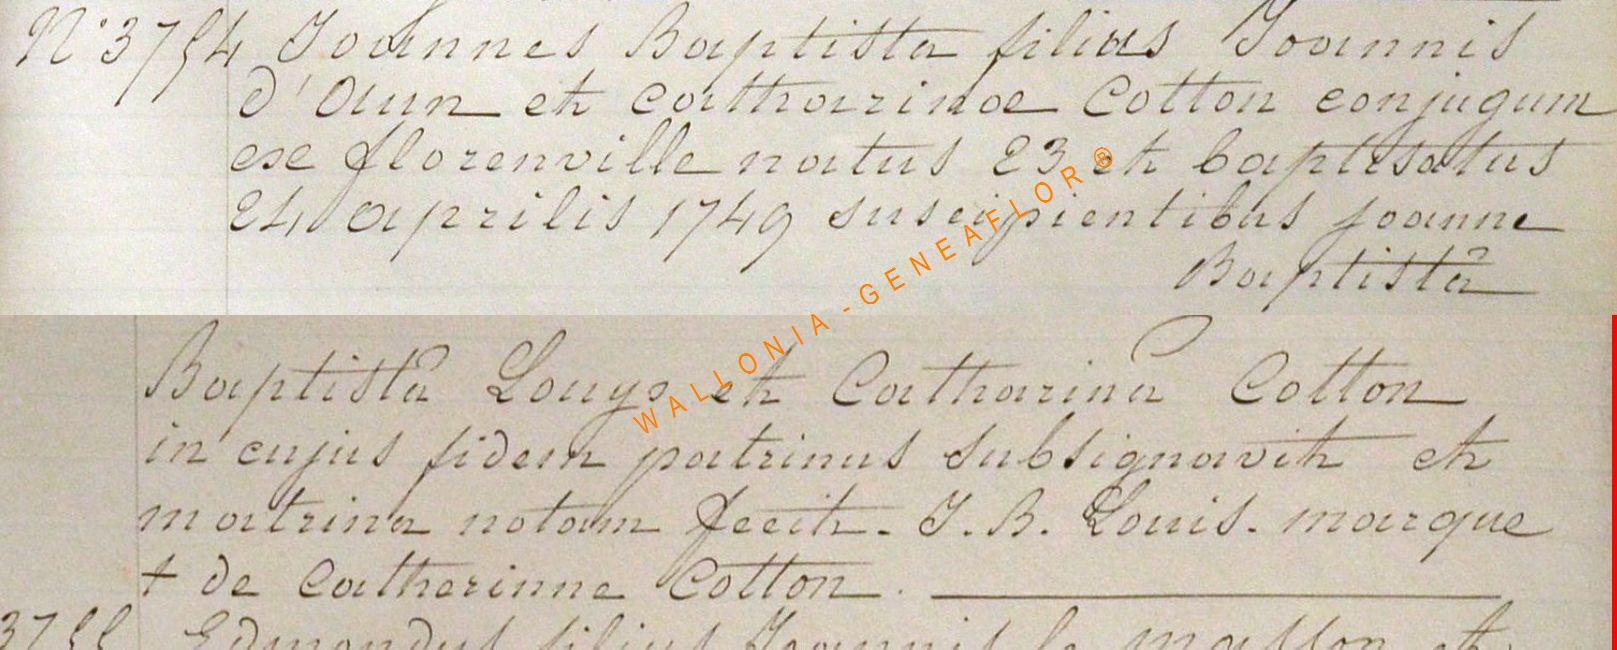 N° 3754 Joannes Baptista filius Joannis
d'Aun et Catharinae Cotton conjugum
ex florenville natus 23 et baptisatus
24 aprilis 1749 suscipientibus joanne
Baptistâ
WALLONIA - GENEAFLOR ®
Baptistâ Louys et Catharina Cotton
in cujus fidem patrinus subsignavit et
matrina notam fecit. J. B. Louis. marque
+ de Catherinne Cotton.
3755 Edmondus filius Joannis le masson et